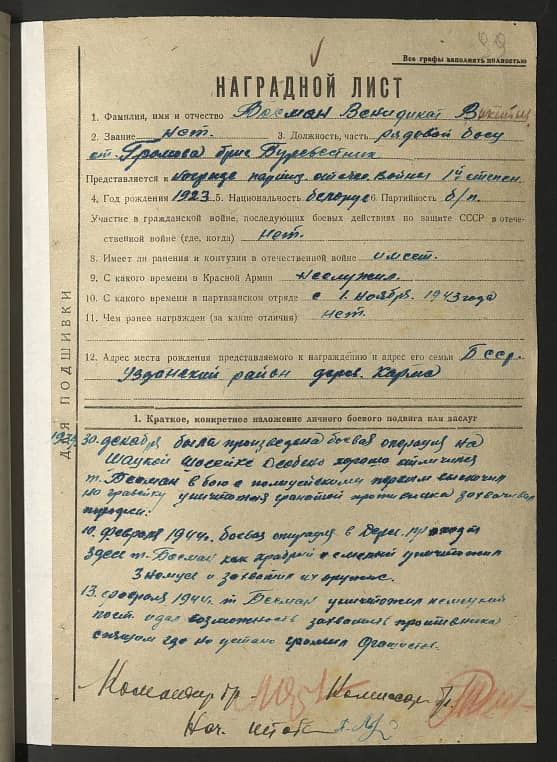 Все графы заполнять полностью
НАГРАДНОЙ ЛИСТ
1. Фамилия, имя и отчество Босман Венидикат
2. Звание нет. 3. Должность, часть рядовой боец
от. Громова бриг Буревестник
Представляется к награде партиз отечес. войны 1й степен.
4. Год рождения 1923 5. Национальность белорус 6 Партийность б/п.
Участие в гражданской войне, последующих боевых действиях по защите СССР в отече-
ственной войне (где, когда) нет.
8. Имеет ли ранения и контузии в отечественной войне имеет.
9. С какого времени в Красной Армии неслужил.
10. С какого времени в партизанском отряде с 1. ноября. 1943 года
11. Чем ранее награжден (за какие отличия) нет.
12. Адрес места рождения представляемого к награждению и адрес его семьи Бсср.
Узданский район дерев. Карма
ДЛЯ ПОДШИВКИ
1. Краткое, конкретное изложение личного боевого подвига или заслуг
30. декабря была произведена боевая операция на
Шацкой шосейке Особено хорошо отличился
т. Босман в бою с полицейскими первым выскочил
на гравейку уничтожая гранатой противника захватывал
10. февраля 1944г. боевая операция в дерн.
здесь т. Босман как храбрый и смелый уничтожил
3 немцев и захватил их оружие.
13. февраля 1944г. т Босман уничтожил немецкий
пост. и дал возможность захватить противника
спящем где но устано громил фашистов.
Командир бр. Комиссар бр.
Нач. штаба